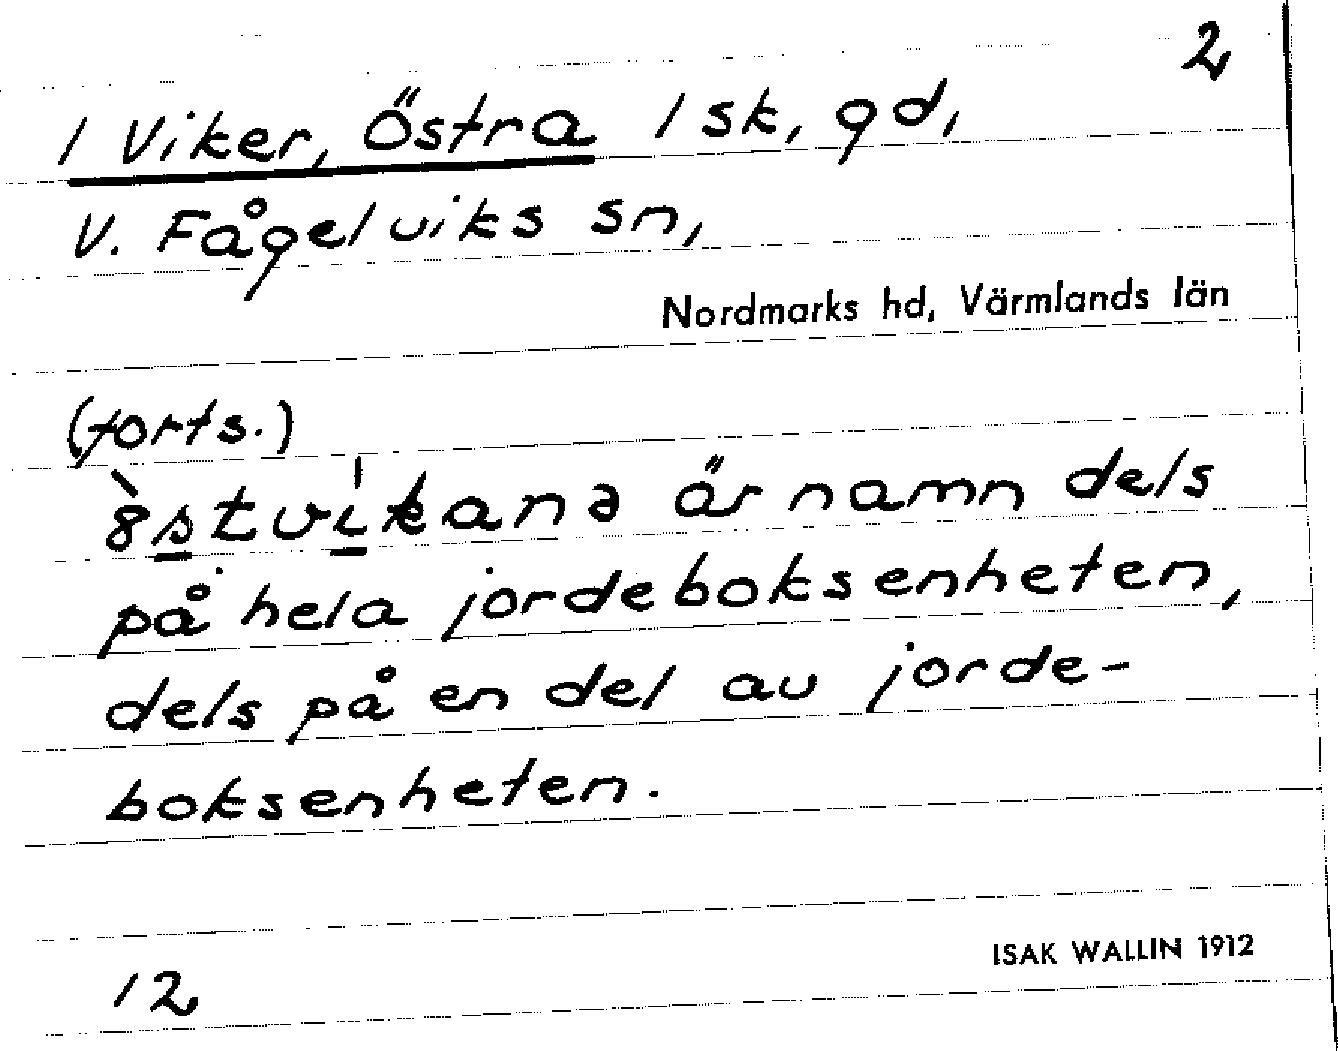 2
1 Viker, Östra 1 sk, gd,
V. Fågelviks sn,
Nordmarks hd, Värmlands län
(forts.)
8̀stvi̍kanə är namn dels
på hela jordeboksenheten,
dels på en del av jorde-
boksenheten.
ISAK WALLIN 1912
12